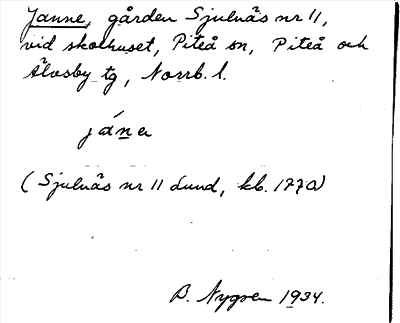 Janne, gården Sjulnäs nr 11,
vid skolhuset, Piteå sn, Piteå och
Älvsby tg, Norrb. l.
jána
(Sjulnäs nr 11 Lund, kb. 1770)
B. Nygren 1934.